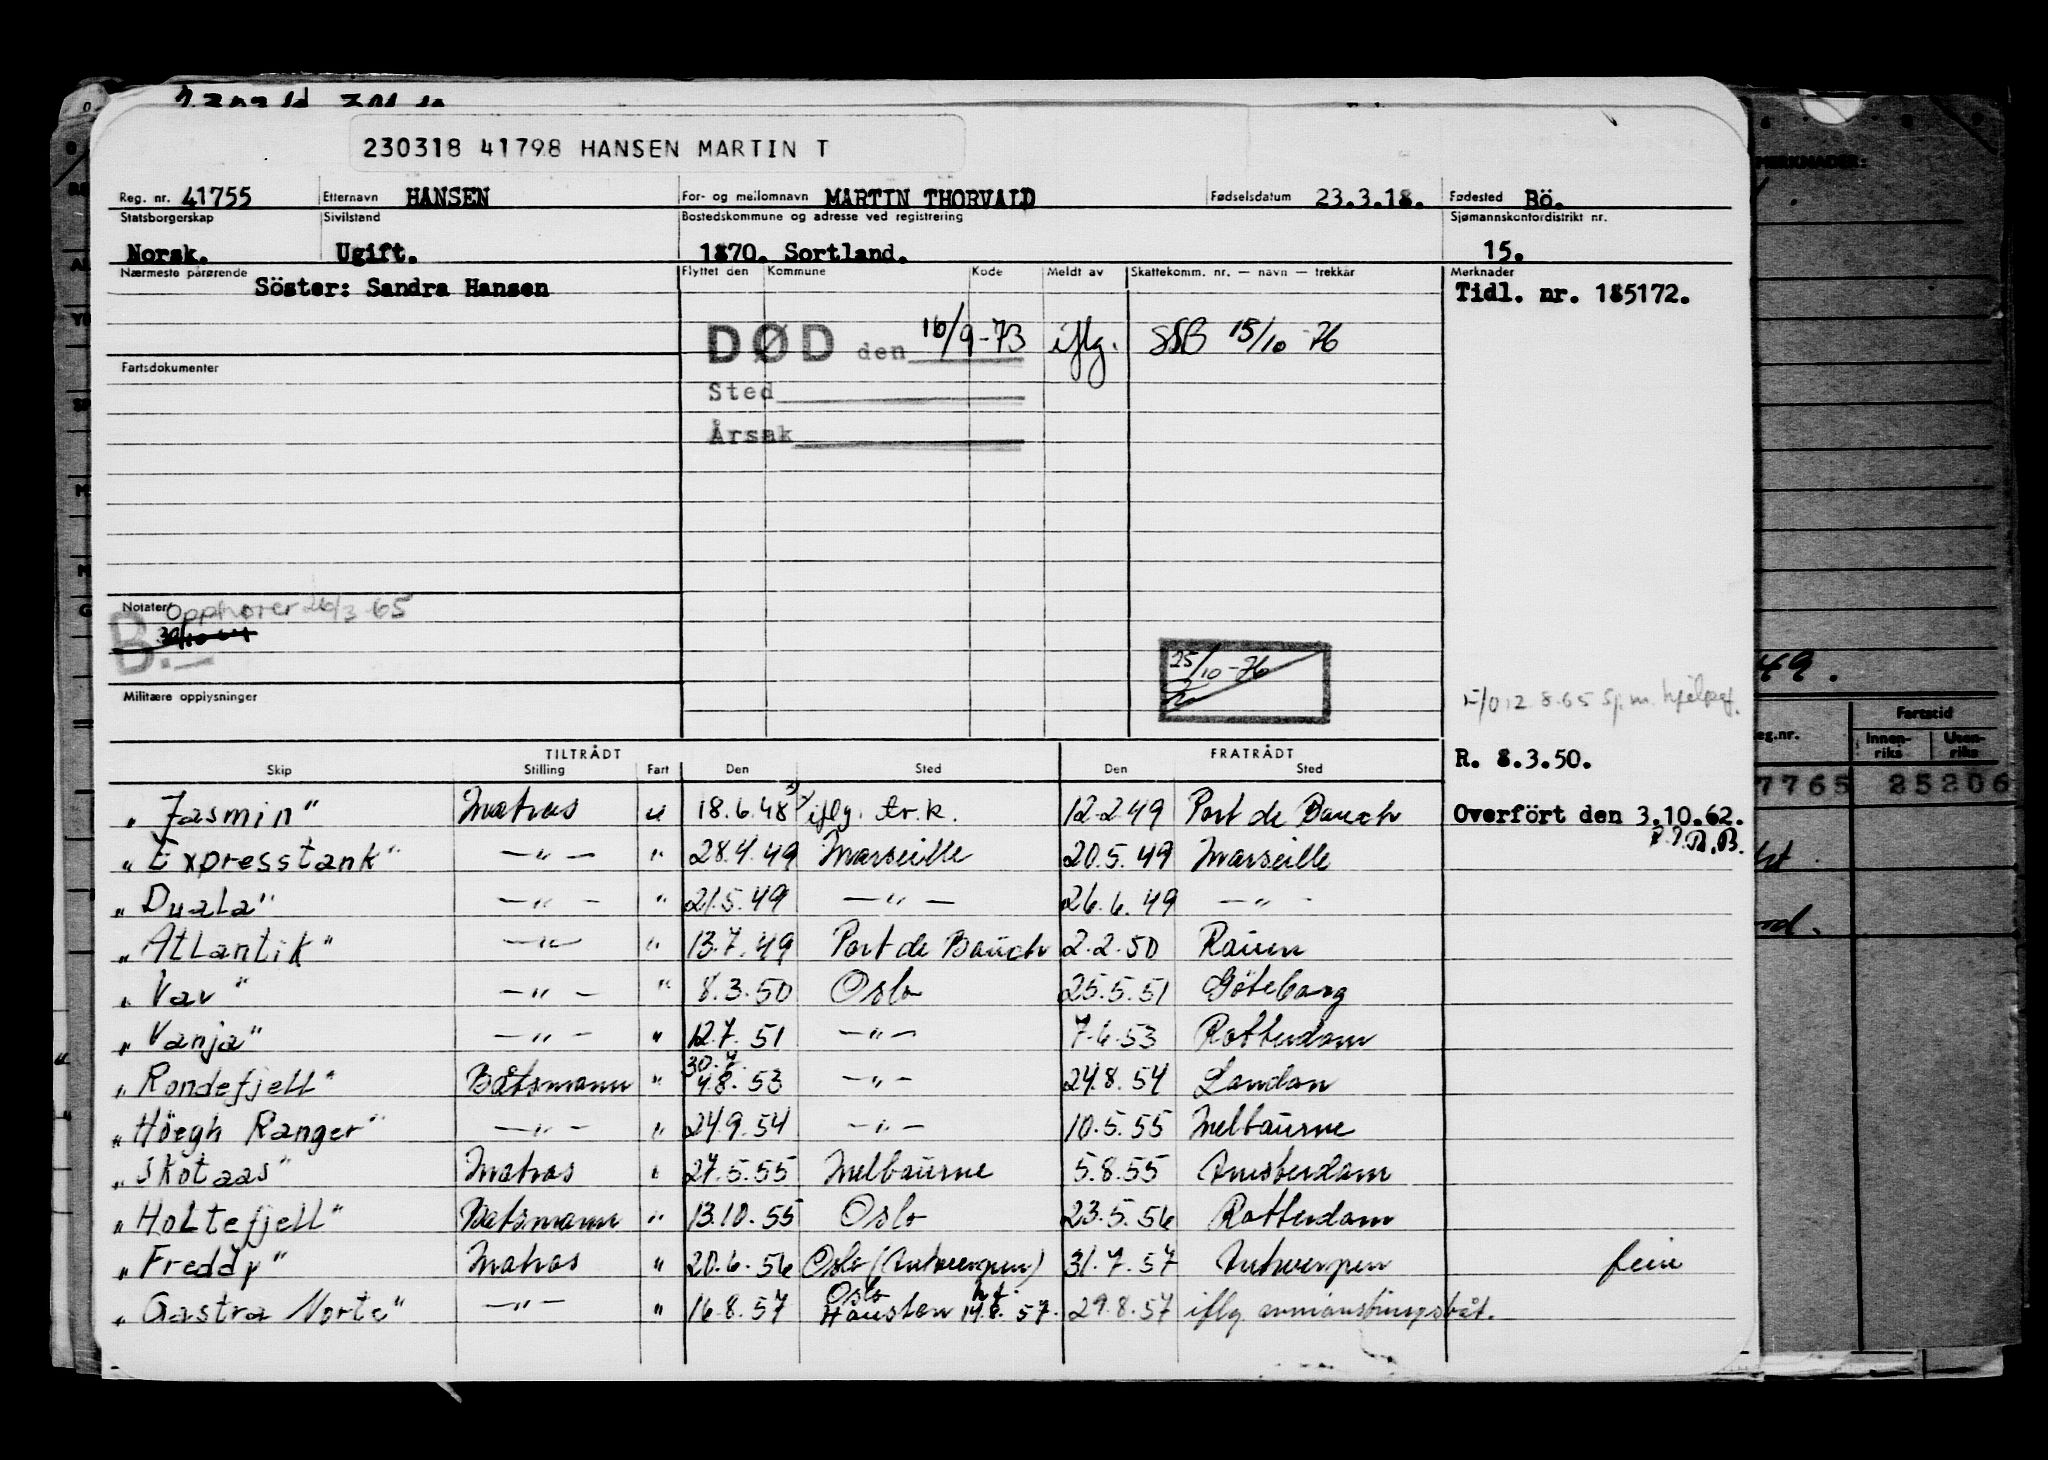 230318 41798 HANSEN MARTIN T
Reg. nr. 41755 Etternavn HANSEN For- og mellomnavn MARTIN THORVALD Fødselsdatum 23.3.18. Fødested Bö.
Statsborgerskap Sivilstand Bostedskommune og adresse ved registrering Sjømannskontordistrikt nr.
Norsk. Ugift. 1870. Sortland. 15.
Nærmeste pårørende Flyttet den Kommune Kode Meldt av Skattekomm. nr. — navn — trekkår Merknader
Söster: Sandra Hansen Tidl. nr. 185172.
DØD den 16/9-73 iflg. SSB 15/10-76
Fartsdokumenter
Sted
Årsak
Notater Opphører 26/3-65
B.
25/10-76
Militære opplysninger
8.65 Sj. m. hjelpef.
TILTRÅDT FRATRÅDT
Skip Stilling Fart Den Sted Den Sted
R. 8.3.50.
"Jasmin" Matros u 18.6.48 iflg. Ar.k. 12.2.49 Port de Bouch Overfört den 3.10.62.
"Expresstank" —"— " 28.4.49 Marseille 20.5.49 Marseille
"Duala" —"— " 21.5.49 —"— 26.6.49 —"—
"Atlantik" —"— " 13.7.49 Port de Bouch 2.2.50 Rouen
"Vav" —"— " 8.3.50 Oslo 25.5.51 Göteborg
"Vanja" —"— " 12.7.51 —"— 7.6.53 Rotterdam
30.7.
"Rondefjell" Båtsmann " 4.8.53 —"— 24.8.54 London
"Höegh Ranger" —"— " 24.9.54 —"— 10.5.55 Melbourne
"Skotaas" Matros " 27.5.55 Melbourne 5.8.55 Amsterdam
"Holtefjell" Båtsmann " 13.10.55 Oslo 23.5.56 Rotterdam
"Freddy" Matros " 20.6.56 Oslo (Antwerpen) 31.7.57 Antwerpen
Oslo
"Gastra Norte" —"— " 16.8.57 Houston 14.8.57. 29.8.57 iflg. avmönstringsbåt.
MERKNADER:
49.
Fartstid
eg.nr. Innen-riks Uten-riks
7765 25206